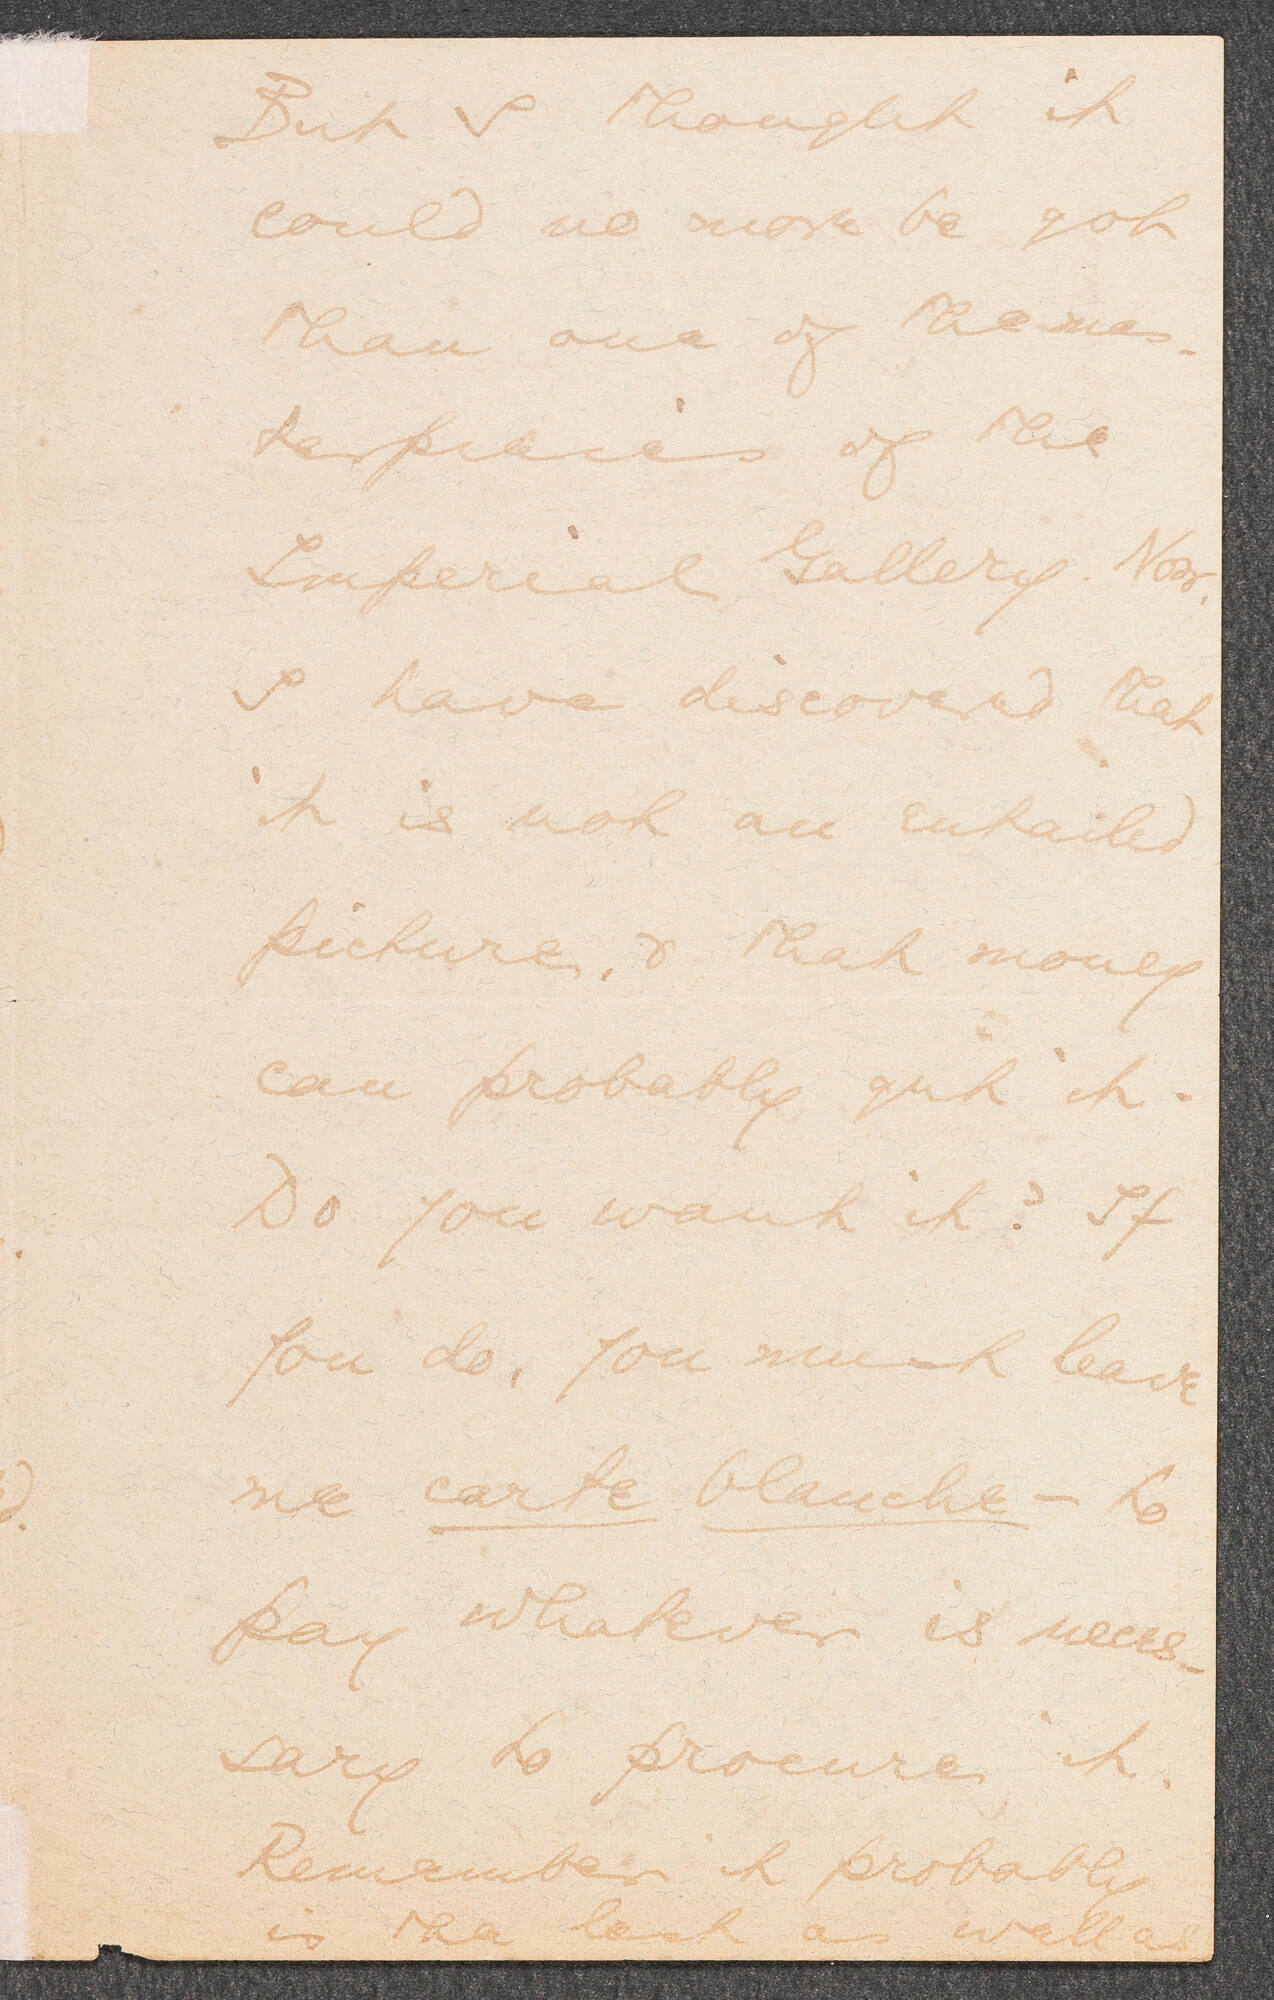 But I thought it
could no more be got
than one of the mas-
terpieces of the
Imperial Gallery. Now,
I have discovered that
it is not an entailed
picture, & that money
can probably get it.
Do you want it? If
you do, you must leave
me carte blanche — to
pay whatever is neces-
sary to procure it.
Remember it probably
is the last as well as